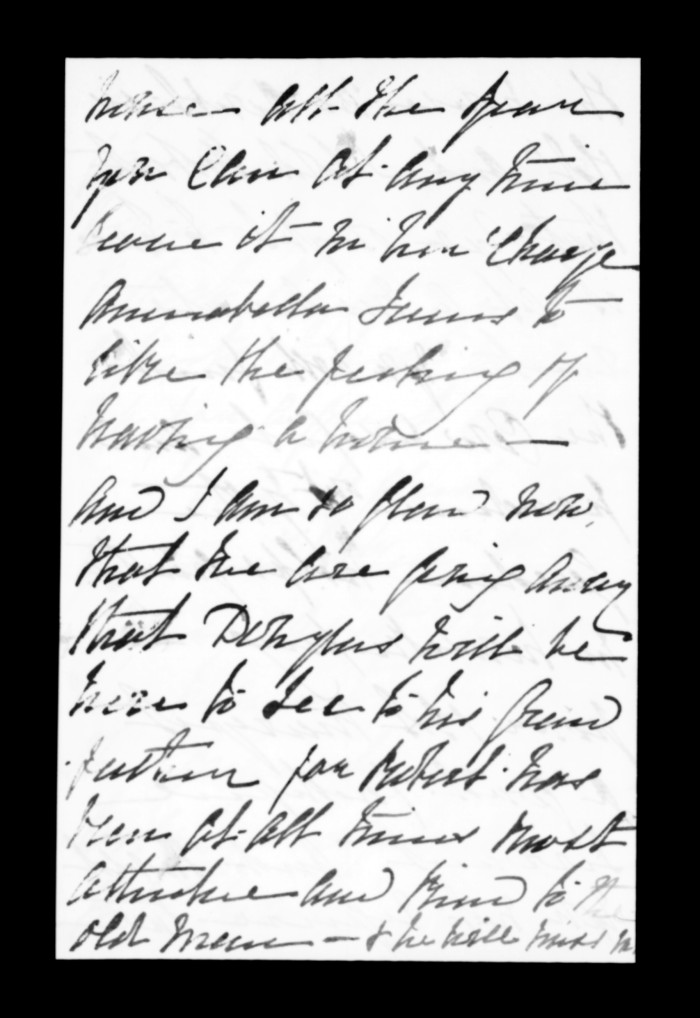 house all the year
you can at any time
leave it in her charge
Annabella seems to
like the feeling of
having a home —
and I am so glad now
that we are going away
that Douglas will be
here to see to his grand
father for Robert has
been at all times most
attentive and kind to the
old man — & he will miss